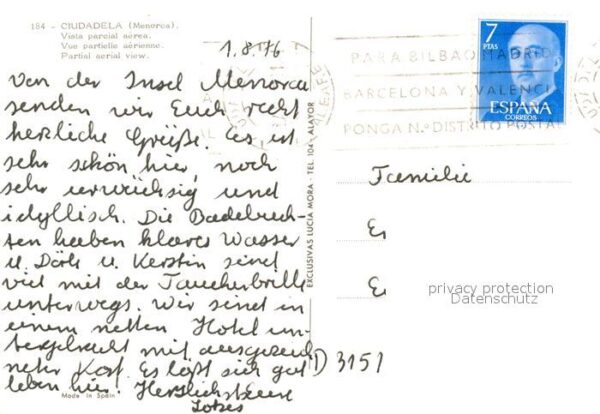 184 - CIUDADELA (Menorca).
Vista parcial aérea.
Vue partielle aérienne.
Partial aerial view.
1.8.76
Von der Insel Menorca
senden wir Euch recht
herzliche Grüße. Es ist
sehr schön hier, noch
sehr urwüchsig und
idyllisch. Die Badebuch-
ten haben klares Wasser
u. Dörte u. Kerstin sind
viel mit der Taucherbrille
unterwegs. Wir sind in
einem netten Hotel un-
tergebracht mit ausgezeich
neter Kost. Es läßt sich gut
leben hier. Herzlichst Eure
Made in Spain
EXCLUSIVAS LUCIA MORA - TEL. 104 - ALAYOR
7
PTAS
ESPAÑA
CORREOS
PARA BILBAO MADRID
BARCELONA Y VALENCI
PONGA N.º DISTRITO POSTAL
Familie
E
E
privacy protection
Datenschutz
D 3151